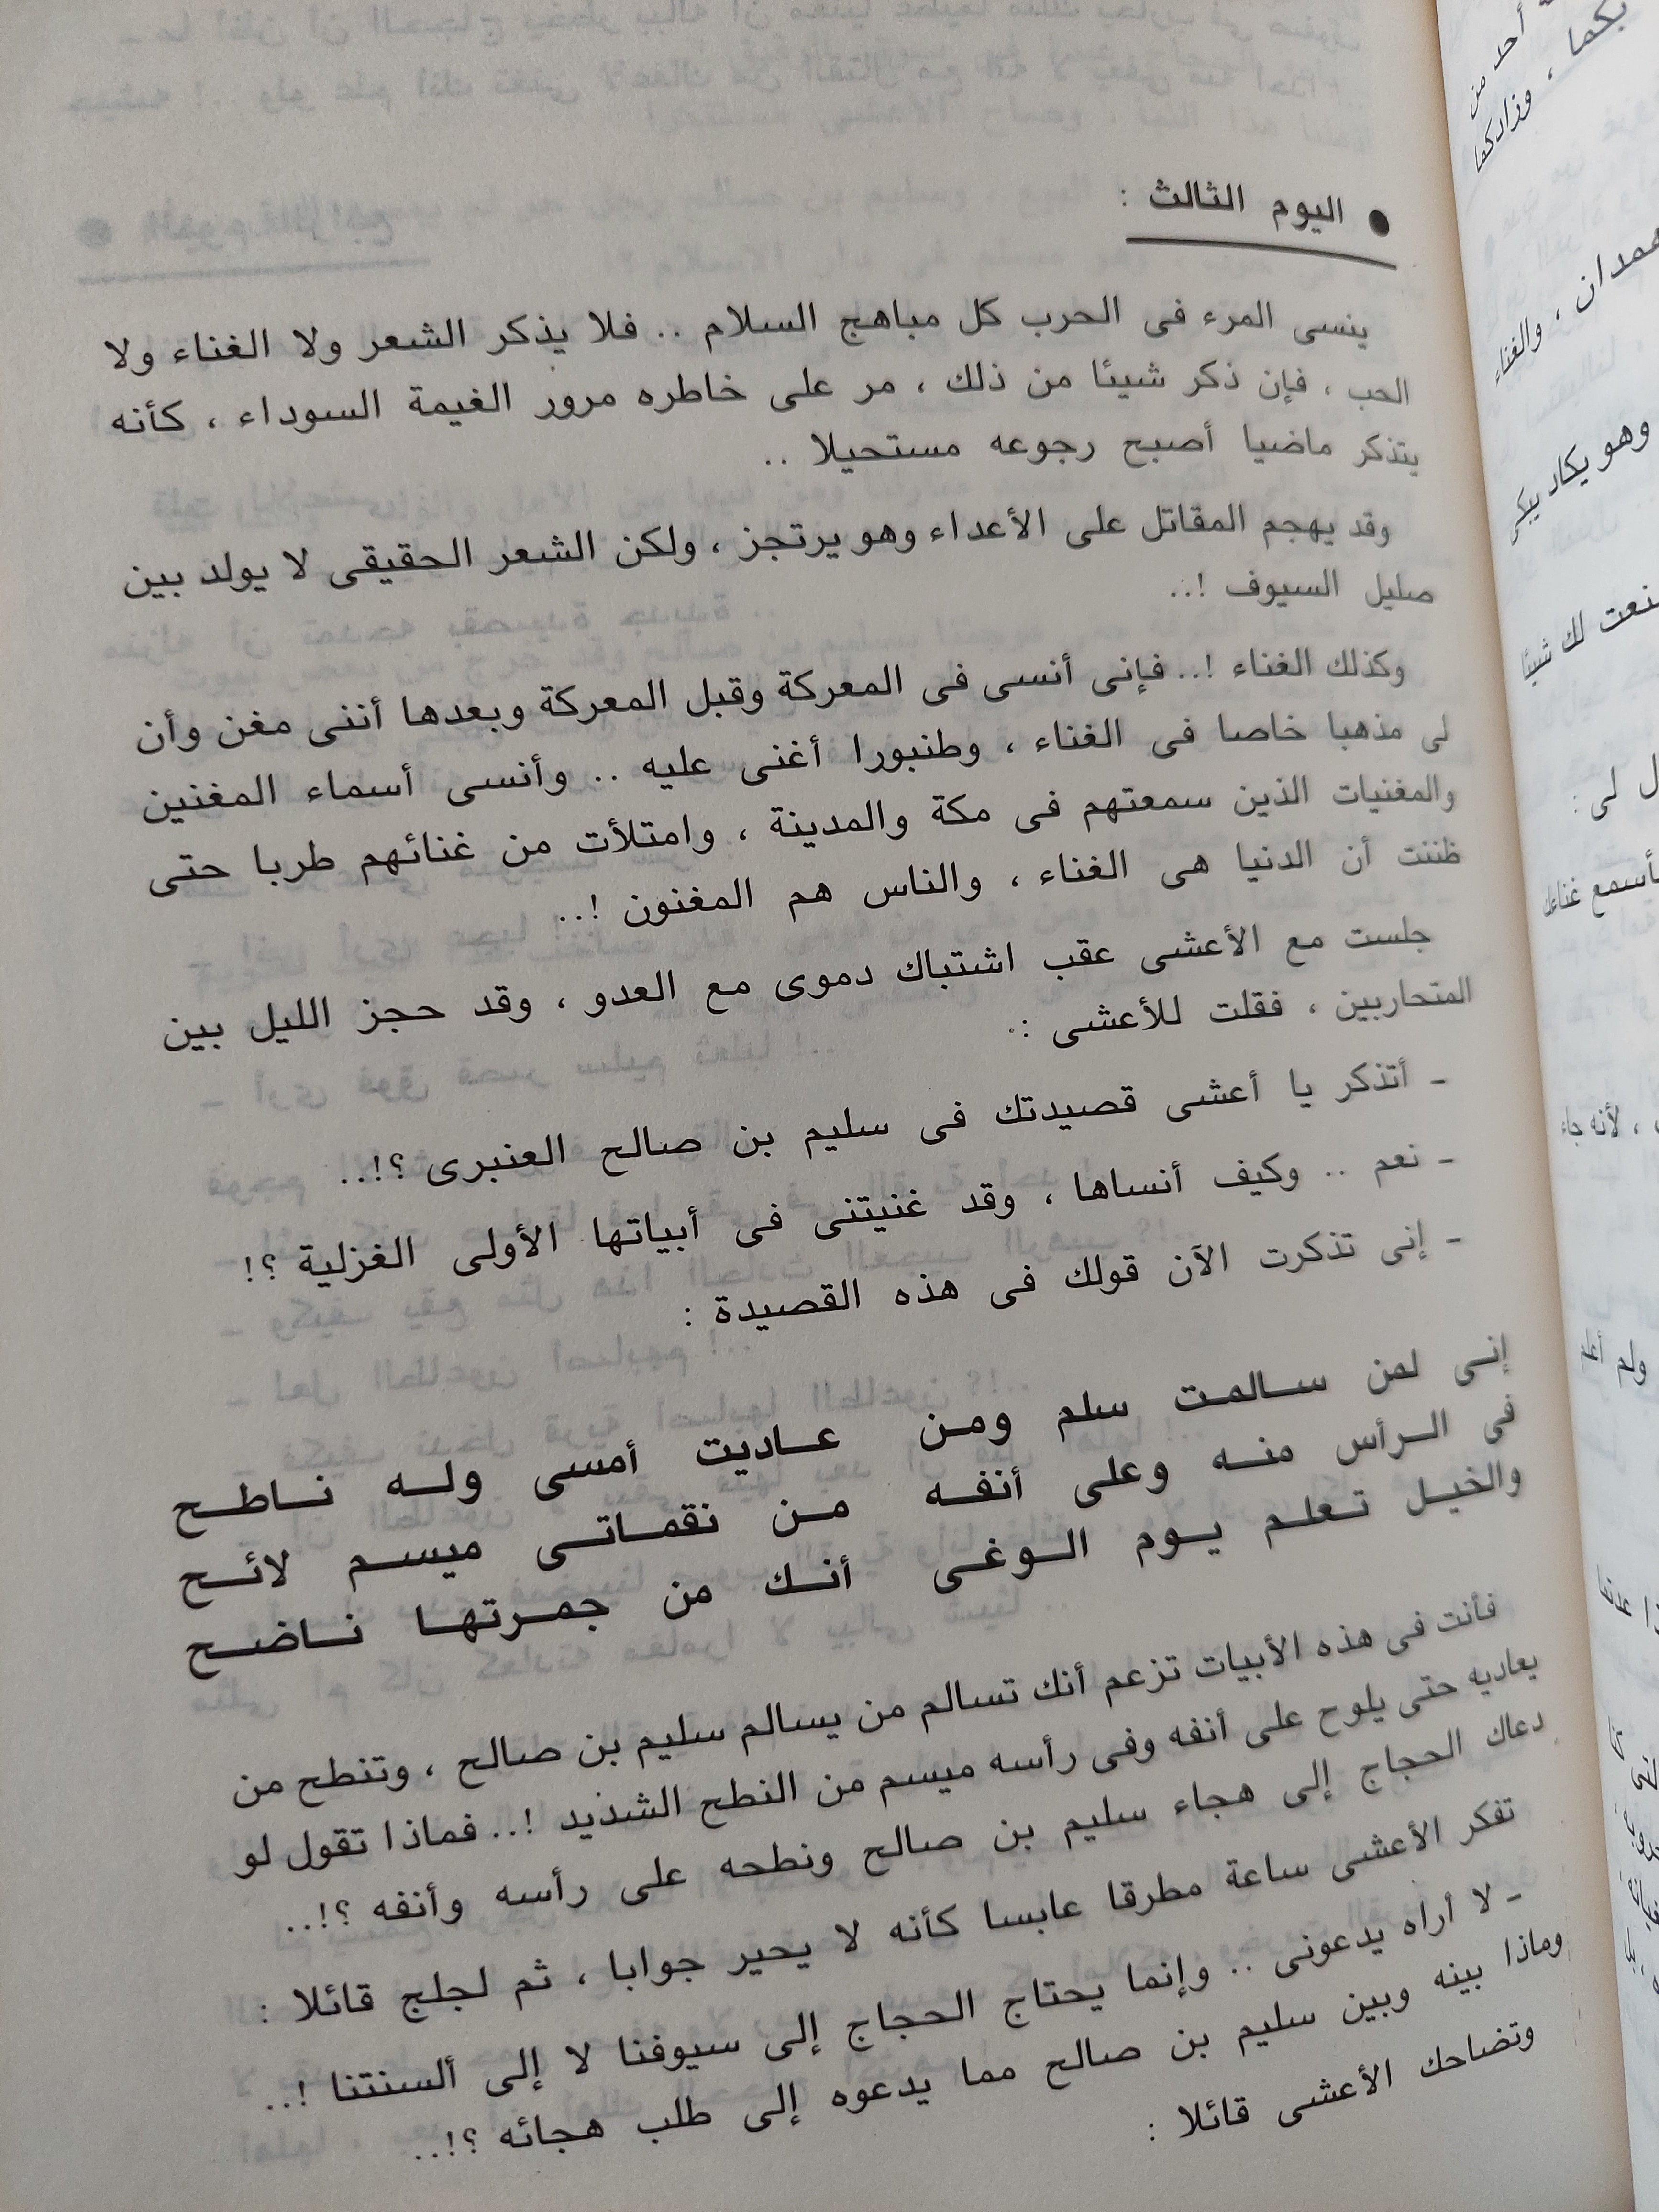 ● اليوم الثالث :
ينسى المرء فى الحرب كل مباهج السلام .. فلا يذكر الشعر ولا الغناء ولا
الحب ، فإن ذكر شيئا من ذلك ، مر على خاطره مرور الغيمة السوداء ، كأنه
يتذكر ماضيا أصبح رجوعه مستحيلا ..
وقد يهجم المقاتل على الأعداء وهو يرتجز ، ولكن الشعر الحقيقى لا يولد بين
صليل السيوف !..
وكذلك الغناء !.. فإنى أنسى فى المعركة وقبل المعركة وبعدها أننى مغن وأن
لى مذهبا خاصا فى الغناء ، وطنبورا أغنى عليه .. وأنسى أسماء المغنين
والمغنيات الذين سمعتهم فى مكة والمدينة ، وامتلأت من غنائهم طربا حتى
ظننت أن الدنيا هى الغناء ، والناس هم المغنون !..
جلست مع الأعشى عقب اشتباك دموى مع العدو ، وقد حجز الليل بين
المتحاربين ، فقلت للأعشى :
ـ أتذكر يا أعشى قصيدتك فى سليم بن صالح العنبرى ؟!..
ـ نعم .. وكيف أنساها ، وقد غنيتنى فى أبياتها الأولى الغزلية ؟!
ـ إنى تذكرت الآن قولك فى هذه القصيدة :
إنى لمن سالمت سلم ومن عاديت أمسى وله ناطح
فى الرأس منه وعلى أنفه من نقماتى ميسم لائح
والخيل تعلم يوم الوغى أنك من جمرتها ناضح
فأنت فى هذه الأبيات تزعم أنك تسالم من يسالم سليم بن صالح ، وتنطح من
يعاديه حتى يلوح على أنفه وفى رأسه ميسم من النطح الشديد !.. فماذا تقول لو
دعاك الحجاج إلى هجاء سليم بن صالح ونطحه على رأسه وأنفه ؟!..
تفكر الأعشى ساعة مطرقا عابسا كأنه لا يحير جوابا ، ثم لجلج قائلا :
ـ لا أراه يدعونى .. وإنما يحتاج الحجاج إلى سيوفنا لا إلى ألسنتنا !..
وماذا بينه وبين سليم بن صالح مما يدعوه إلى طلب هجائه ؟!..
وتضاحك الأعشى قائلا :
أحد من
بكما ، وزادكما
همدان ، والغناء
وهو يكاد يبكى
لك شيئا
ل لى :
غناءك
، لأنه جاء
ولم أعلم